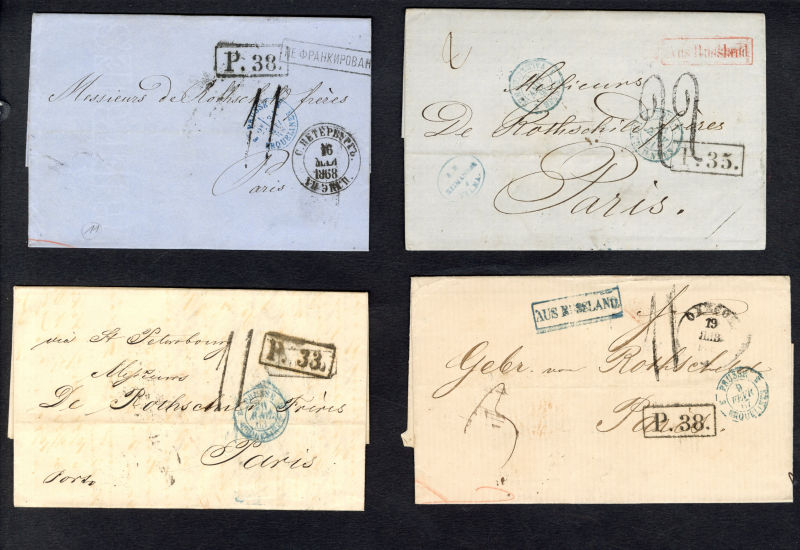 P. 38.
НЕ ФРАНКИРОВАН
Messieurs de Rothschild frères
Paris
С. ПЕТЕРБУРГЪ
16
МАЯ
1868
11
Aus Russland
Messieurs
De Rothschild Frères
22
P. 35.
Paris.
via St Petersbourg
11
P. 33.
Messieurs
De Rothschild Frères
Paris
Porto
AUS RUSSLAND
11
ОДЕССА
19
ЯНВ.
Gebr. von Rothschild
PRUSSE
9
FEVR
ERQUELINES
Paris
P. 38.